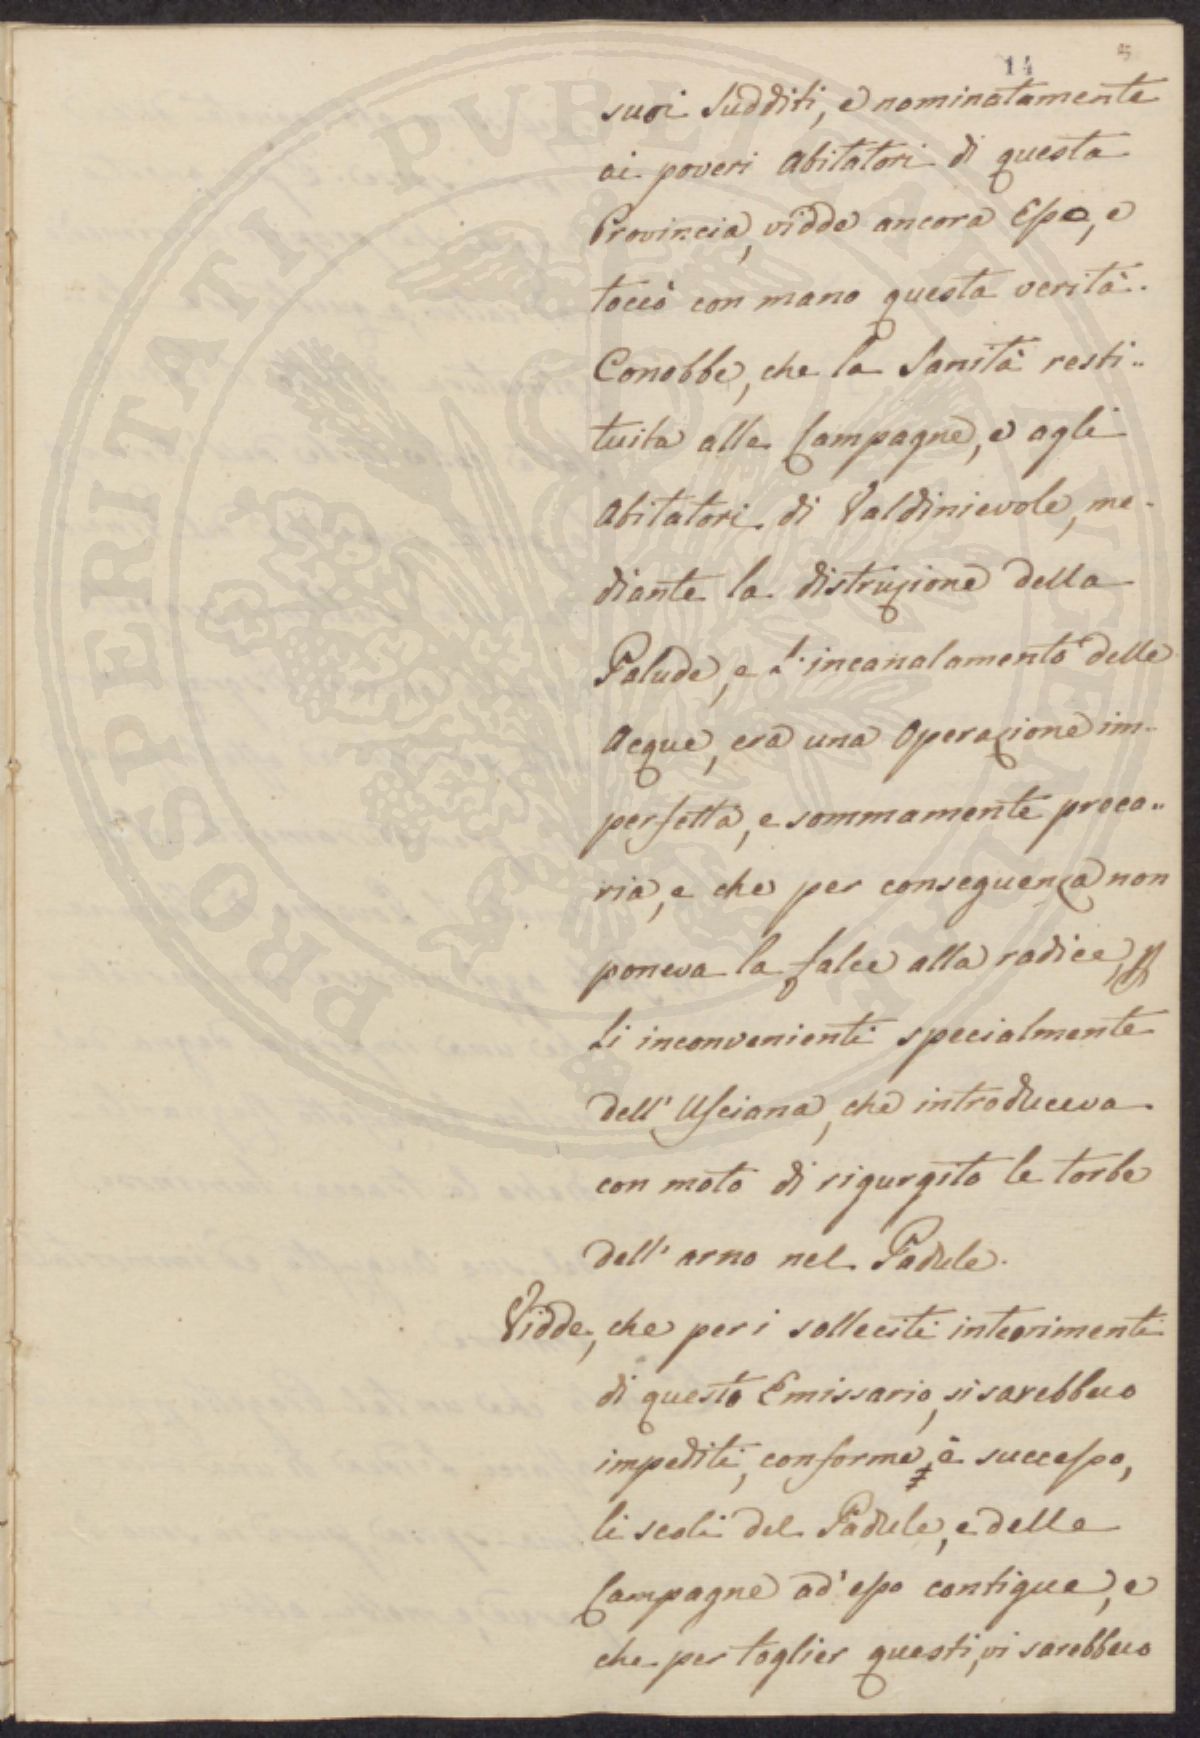 14
suoi Sudditi, e nominatamente
ai poveri Abitatori di questa
Provincia, vidde ancora Esso, e
toccò con mano questa verità.
Conobbe, che la Sanità resti..
tuita alle Campagne, e agli
Abitatori di Valdinievole, me.
diante la distruzione della
Palude, e l'incanalamento delle
Acque, era una Operazione im..
perfetta, e sommamente preca..
ria, e che per conseguenza non
poneva la falce alla radice,
Li inconvenienti specialmente
dell'Usciana, che introduceva
con moto di rigurgito le torbe
dell'arno nel Padule.
Vidde, che per i solleciti interimenti
di questo Emissario, si sarebbero
impediti, conforme è successo,
li scoli del Padule, e delle
Campagne ad'esso contigue, e
che per toglier questi, vi sarebbero
PROSPERITATI PVBLICAE AVGENDAE